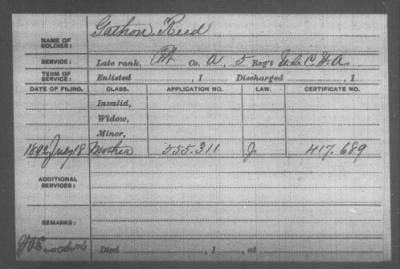 NAME OF SOLDIER: Gathon Reed
SERVICE: Late rank, Pvt Co. A, 5 Reg't U.S.C.H.A.
TERM OF SERVICE: Enlisted , 1 Discharged , 1
DATE OF FILING. CLASS. APPLICATION NO. LAW. CERTIFICATE NO.
Invalid,
Widow,
Minor,
1892 July 18 Mother 555.311 J. 417.689
ADDITIONAL SERVICES:
REMARKS:
Died , 1 , at